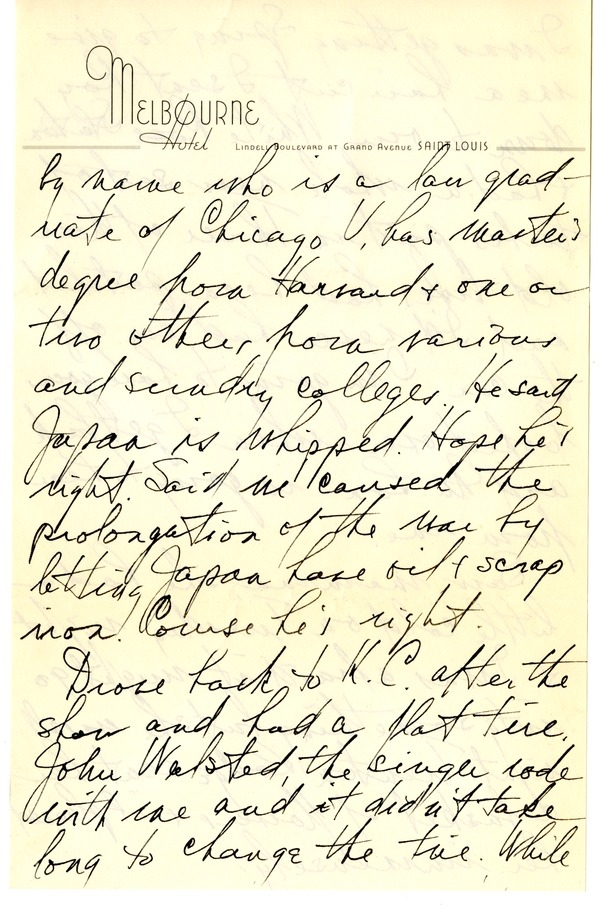 MELBOURNE
Hotel LINDELL BOULEVARD AT GRAND AVENUE SAINT LOUIS
by name who is a law grad-
uate of Chicago U, has master's
degree from Harvard & one or
two others from various
and sundry colleges. He said
Japan is whipped. Hope he's
right. Said we caused the
prolongation of the war by
letting Japan have oil & scrap
iron. Course he's right.
Drove back to K.C. after the
show and had a flat tire.
John Walsted, the singer rode
with me and it didn't take
long to change the tire. While